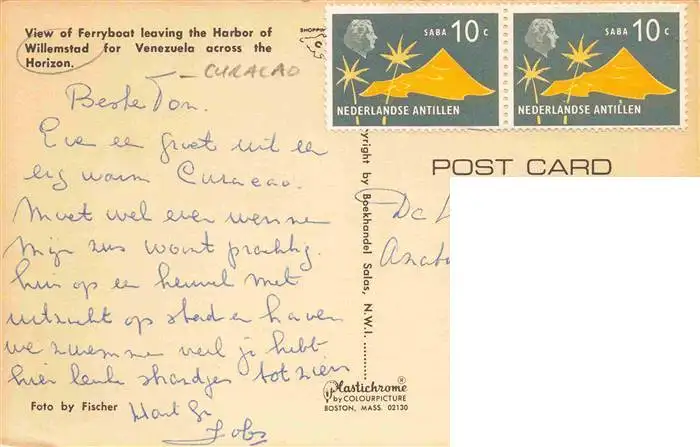 View of Ferryboat leaving the Harbor of
Willemstad for Venezuela across the
Horizon.
CURACAO
SHOPPING
SABA 10 c
NEDERLANDSE ANTILLEN
SABA 10 c
NEDERLANDSE ANTILLEN
POST CARD
Beste Ton.
Eve een groet uit een
erg warm Curacao.
Moet wel even wennen
Mijn zus woont prachtig
huis op een heuvel met
uitzicht op stad en haven
we zwemmen veel je hebt
hier leuke strandjes tot ziens
Hart Gr
Jobs
yright by Boekhandel Salas, N.W.I.
De
Anatu
Plastichrome®
by COLOURPICTURE
BOSTON, MASS. 02130
Foto by Fischer